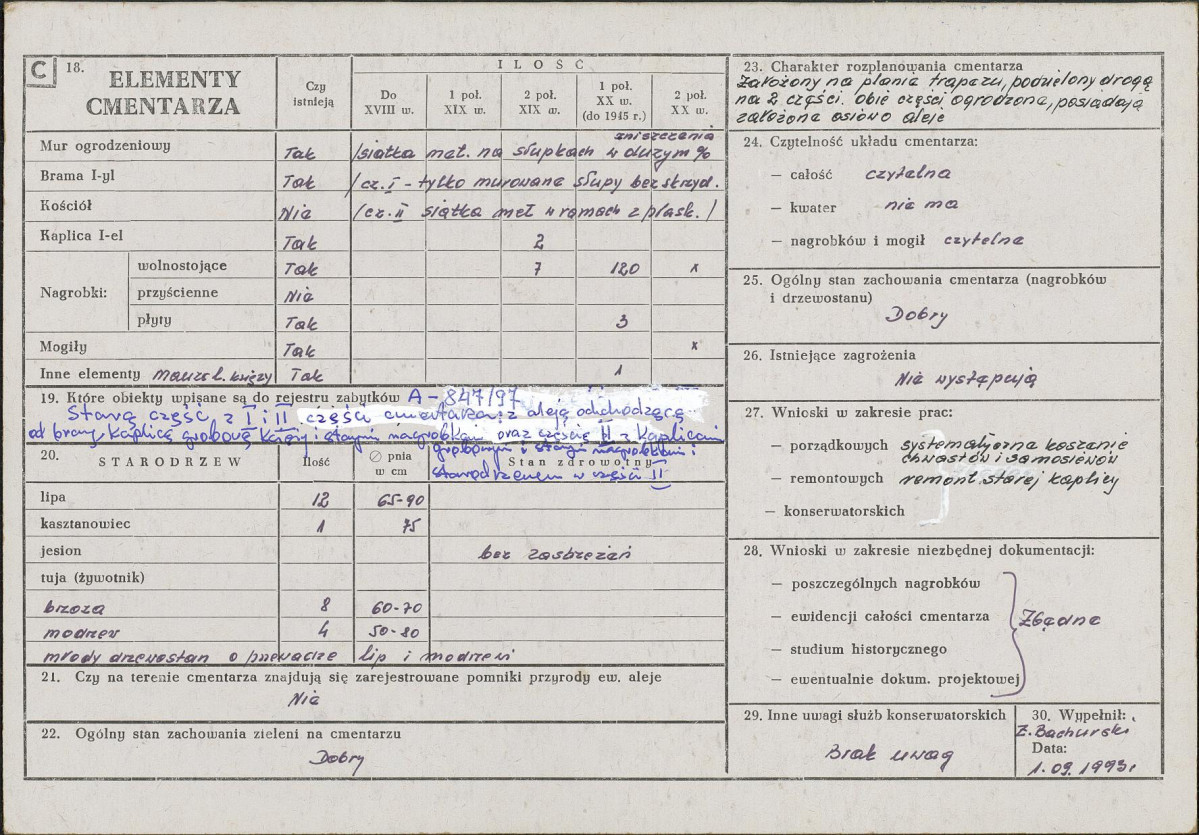 C 18. ELEMENTY CMENTARZA
Czy istnieją
ILOŚĆ
Do XVIII w.
1 poł. XIX w.
2 poł. XIX w.
1 poł. XX w. (do 1945 r.)
2 poł. XX w.
zniszczenia
Mur ogrodzeniowy Tak /siatka met. na słupkach w dużym %
Brama I-yl Tak /cz. I - tylko murowane słupy bez skrzyd.
Kościół Nie /cz. II siatka met w ramach z płask./
Kaplica I-el Tak 2
Nagrobki:
wolnostojące Tak 7 120 x
przyścienne Nie
płyty Tak 3
Mogiły Tak x
Inne elementy mauzol. księży Tak 1
19. Które obiekty wpisane są do rejestru zabytków A-847/97
Starą część z I i II części cmentarza: z aleją odchodzącą
od bramy, kaplicą grobową, i starymi nagrobkami oraz część II z kaplicami
grobowymi i starymi nagrobkami i
starodrzewem w części II
20. STARODRZEW
Ilość
∅ pnia w cm
Stan zdrowotny
lipa 12 65-90
kasztanowiec 1 75
jesion bez zastrzeżeń
tuja (żywotnik)
brzoza 8 60-70
modrzew 4 50-80
młody drzewostan o przewadze lip i modrzewi
21. Czy na terenie cmentarza znajdują się zarejestrowane pomniki przyrody ew. aleje
Nie
22. Ogólny stan zachowania zieleni na cmentarzu
Dobry
23. Charakter rozplanowania cmentarza
Założony na planie trapezu, podzielony drogą
na 2 części. obie części ogrodzone, posiadają
założone osiowo aleje
24. Czytelność układu cmentarza:
— całość czytelna
— kwater nie ma
— nagrobków i mogił czytelne
25. Ogólny stan zachowania cmentarza (nagrobków
i drzewostanu)
Dobry
26. Istniejące zagrożenia
Nie występują
27. Wnioski w zakresie prac:
— porządkowych systematyczne koszenie
chwastów i samosiewów
— remontowych remont starej kaplicy
— konserwatorskich
28. Wnioski w zakresie niezbędnej dokumentacji:
— poszczególnych nagrobków
— ewidencji całości cmentarza Zbędne
— studium historycznego
— ewentualnie dokum. projektowej
29. Inne uwagi służb konserwatorskich
Brak uwag
30. Wypełnił:
Z. Bachurski
Data:
1.09.1993r